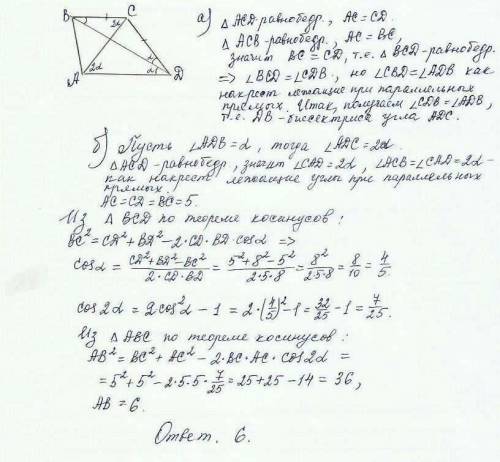 B C 2α
A 2α α α D
а) △ ACD-равнобедр., AC = CD.
△ ACB-равнобедр., AC = BC,
значит BC = CD, т.е. △ BCD-равнобедр.
=> ∠BCD = ∠CDB, но ∠CBD = ∠ADB как
накрест лежащие при параллельных
прямых. Итак, получаем ∠CDB = ∠ADB,
т.е. DB - биссектриса угла ADC.
б) Пусть ∠ADB = α, тогда ∠ADC = 2α.
△ ACD - равнобедр., значит ∠CAD = 2α, ∠ACB = ∠CAD = 2α -
как накрест лежащие углы при параллельных
прямых.
AC = CD = BC = 5.
Из △ BCD по теореме косинусов:
BC² = CD² + BD² - 2·CD·BD·cosα =>
cosα = (CD² + BD² - BC²)/(2·CD·BD) = (5² + 8² - 5²)/(2·5·8) = 8²/(2·5·8) = 8/10 = 4/5
cos2α = 2cos²α - 1 = 2·(4/5)² - 1 = 32/25 - 1 = 7/25.
Из △ ABC по теореме косинусов:
AB² = BC² + AC² - 2·BC·AC·cos2α =
= 5² + 5² - 2·5·5·7/25 = 25 + 25 - 14 = 36,
AB = 6.
Ответ. 6.